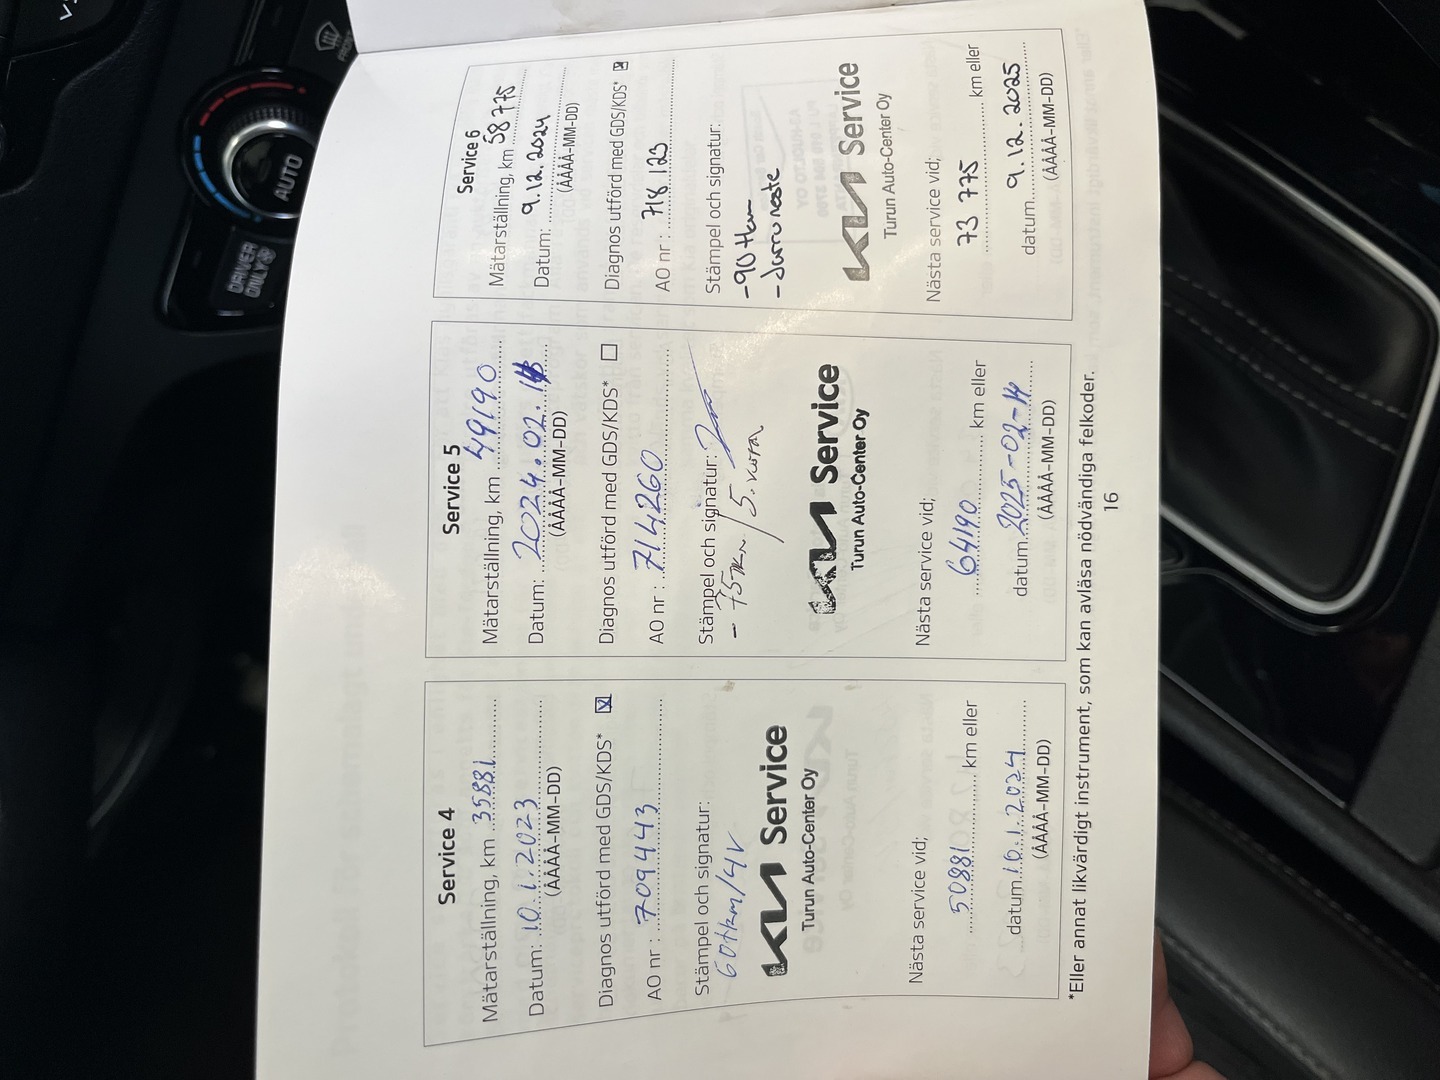 Service 4
Mätarställning, km 35881
Datum: 10.1.2023
(ÅÅÅÅ-MM-DD)
Diagnos utförd med GDS/KDS*
AO nr : 709443
Stämpel och signatur:
60tkm/4v
KIA Service
Turun Auto-Center Oy
Nästa service vid;
50881 km eller
datum 10.1.2024
(ÅÅÅÅ-MM-DD)
Service 5
Mätarställning, km 49190
Datum: 2024.02.
(ÅÅÅÅ-MM-DD)
Diagnos utförd med GDS/KDS*
AO nr : 714260
Stämpel och signatur:
- 75tkm / 5.
KIA Service
Turun Auto-Center Oy
Nästa service vid;
64190 km eller
datum 2025-02-14
(ÅÅÅÅ-MM-DD)
Service 6
Mätarställning, km 58775
Datum: 9.12.2024
(ÅÅÅÅ-MM-DD)
Diagnos utförd med GDS/KDS*
AO nr : 718123
Stämpel och signatur:
- 90tkm
- Jarruneste
KIA Service
Turun Auto-Center Oy
Nästa service vid;
73 775 km eller
datum 9.12.2025
(ÅÅÅÅ-MM-DD)
*Eller annat likvärdigt instrument, som kan avläsa nödvändiga felkoder.
16
AUTO
DRIVER
ONLY